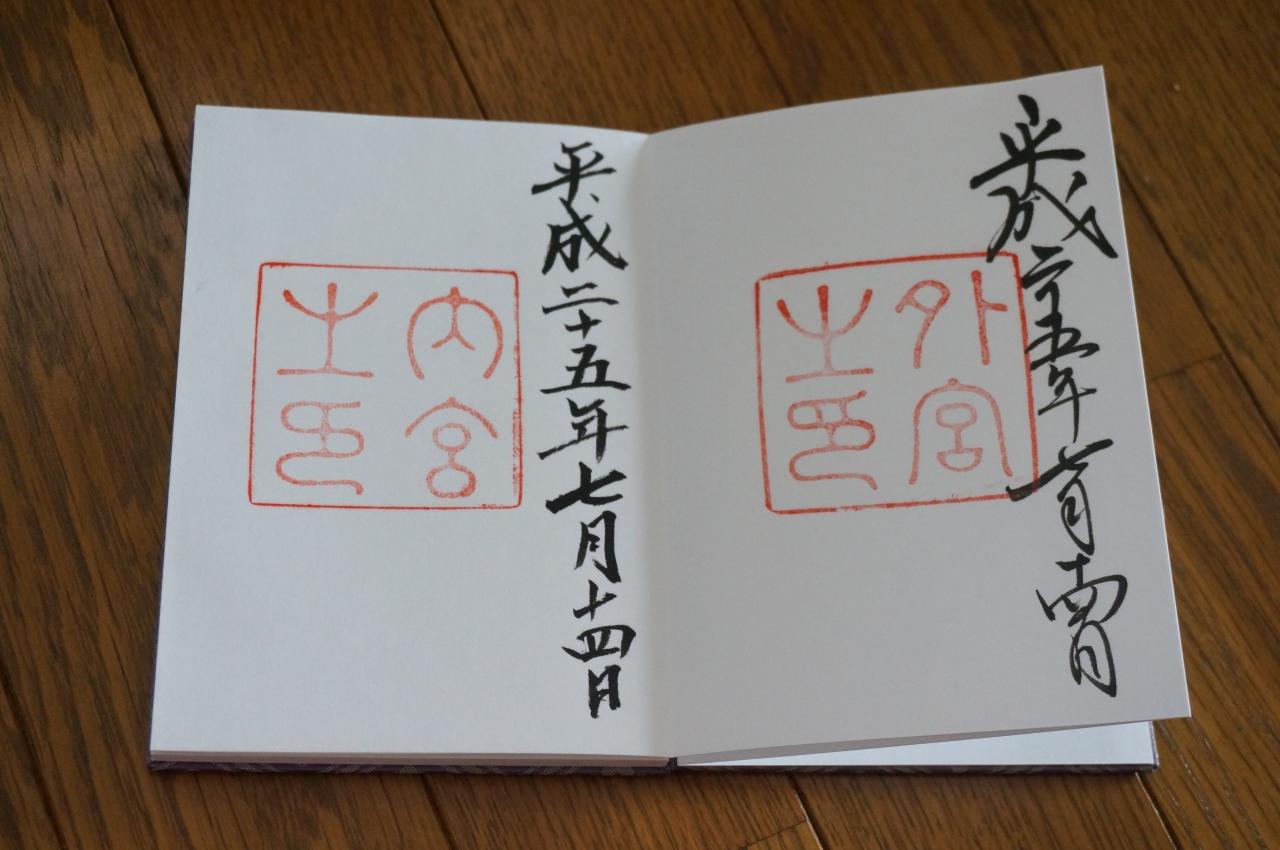 平成二十五年七月十四日
外宮之印
平成二十五年七月十四日
内宮之印